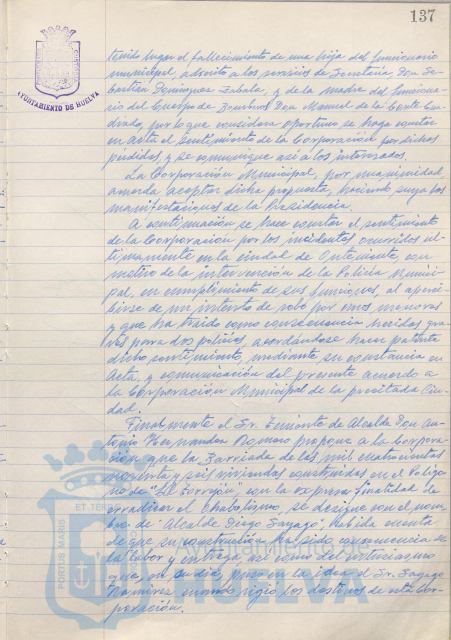 137
AYUNTAMIENTO DE HUELVA
tenido lugar el fallecimiento de una hija del funcionario
municipal, adscrito a los servicios de Secretaría Don Se-
bastián Domínguez Zabala, y de la madre del funciona-
rio del Cuerpo de Bomberos Don Manuel de la Corte
por lo que considera oportuno se haga constar
en Acta el sentimiento de la Corporación por dichas
pérdidas y se comunique así a los interesados.
La Corporación Municipal, por unanimidad,
acuerda aceptar dicha propuesta, haciendo suya las
manifestaciones de la Presidencia.
A continuación se hace constar el sentimiento
de la Corporación por los incidentes ocurridos ul-
timamente en la ciudad de Onteniente, con
motivo de la intervención de la Policía Munici-
pal, en cumplimiento de sus funciones, al aperci-
birse de un intento de robo por unos menores
y que ha traido como consecuencia heridas gra-
ves para dos policías, acordándose hacer patente
dicho sentimiento, mediante su constancia en
Acta, y comunicación del presente acuerdo a
la Corporación Municipal de la precitada Ciu-
dad.
Finalmente el Sr. Teniente de Alcalde Don An-
tonio Hernández Romero propone a la Corpora-
ción que la Barriada de las mil cuatrocientas
noventa y seis viviendas construidas en el Polígo-
no de "El Torrejón", con la expresa finalidad de
erradicar el chabolismo, se designe con el nom-
bre de "Alcalde Diego Sayago", habida cuenta
de que su construcción ha sido consecuencia de
la labor y entrega, así como del entusiasmo
que, en su día, puso en la idea el Sr. Sayago
Ramírez cuando rigió los destinos de esta Cor-
poración.
PORTUS MARIS
ET TERRAE
Ayuntamiento de
HUELVA